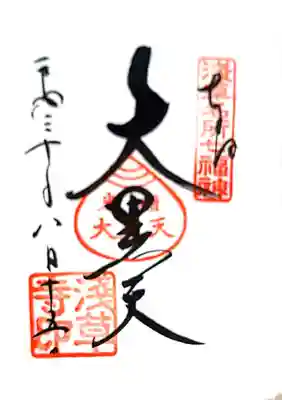 奉拝
浅草名所七福神
大黒天
大黒天
平成三十年八月十五日
浅草寺印